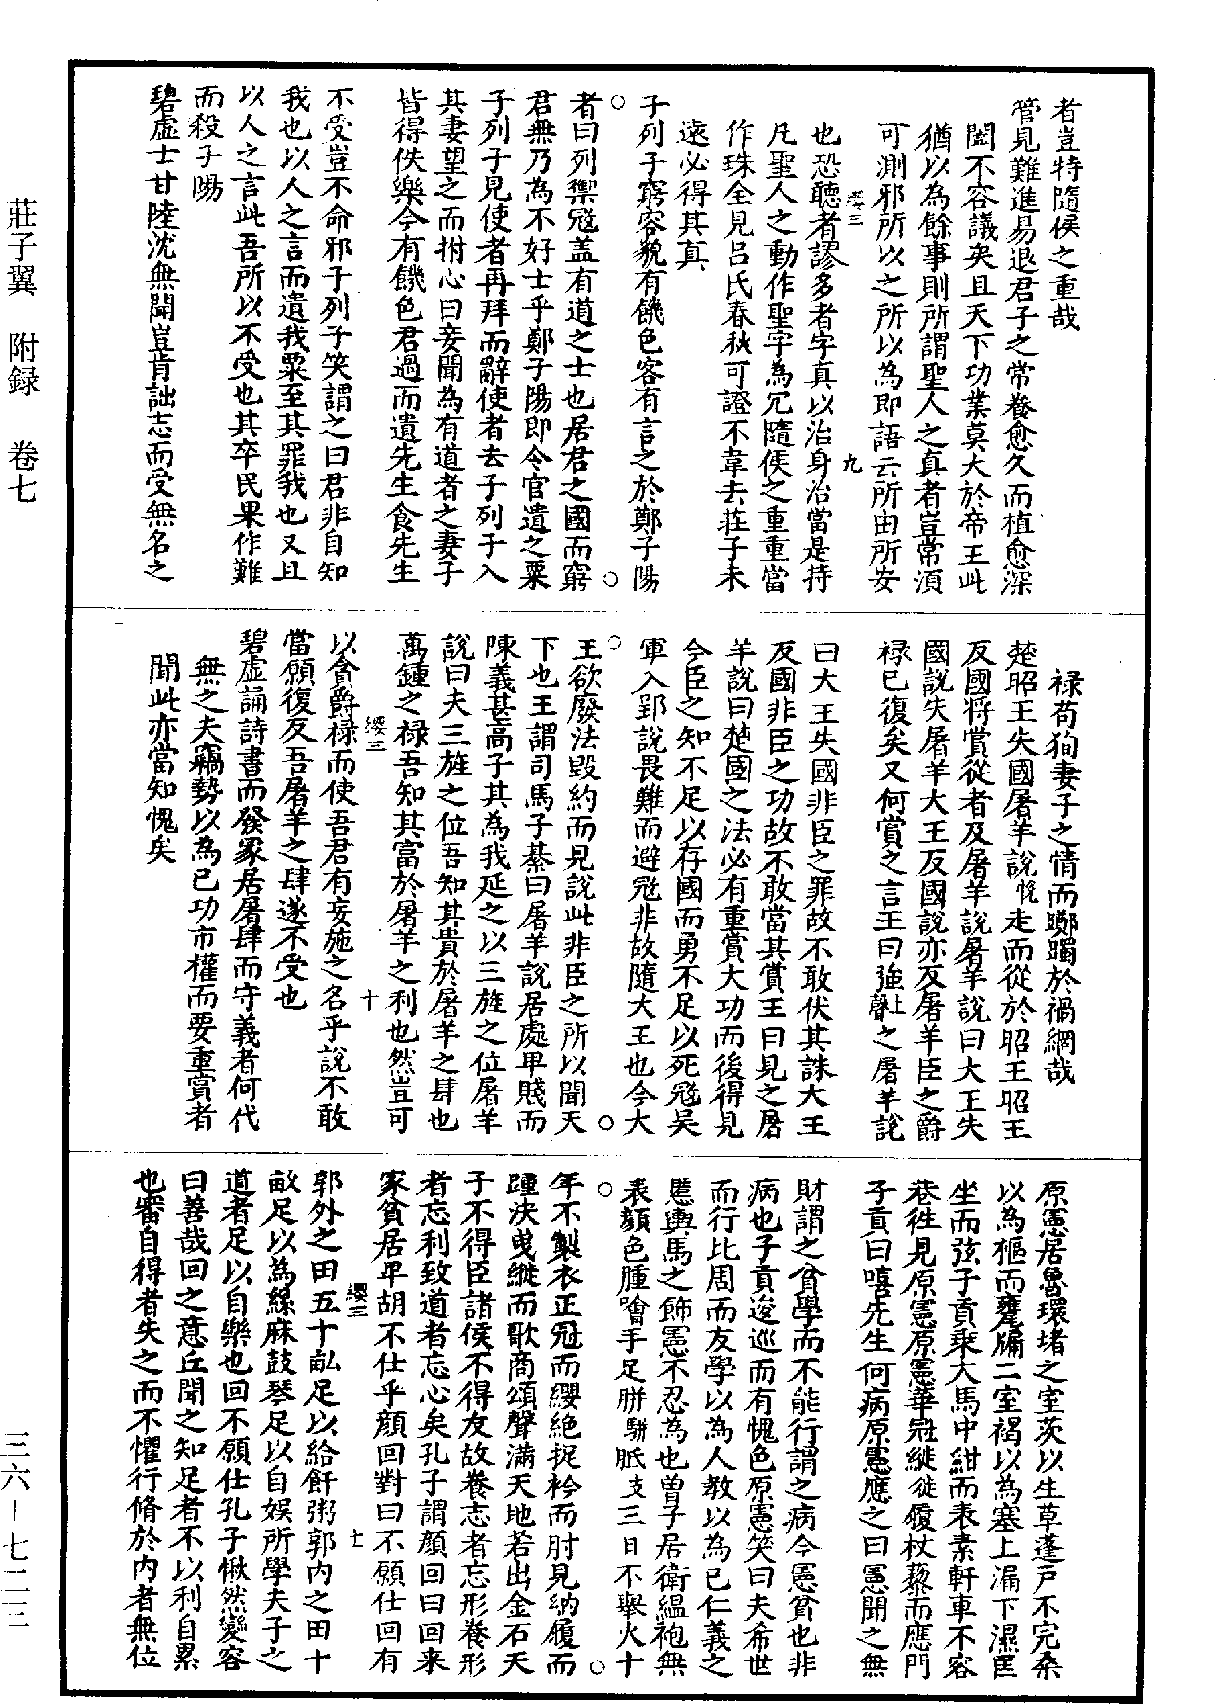 者豈特隨侯之重哉
管見難進易退君子之常養愈久而植愈深
闔不容議矣且天下功業莫大於帝王此
猶以為餘事則所謂聖人之真者豈常須
可測邪所以之所以為即語云所由所安
纓三
九
也恐聽者謬多者字真以治身治當是持
凡聖人之動作聖字為冗隨侯之重重當
作珠全見呂氏春秋可證不韋去莊子未
遠必得其真
子列子窮容貌有饑色客有言之於鄭子陽
者曰列禦寇盖有道之士也居君之國而窮
君無乃為不好士乎鄭子陽即令官遺之粟
子列子見使者再拜而辭使者去子列子入
其妻望之而拊心曰妾聞為有道者之妻子
皆得佚樂今有饑色君過而遺先生食先生
不受豈不命邪子列子笑謂之曰君非自知
我也以人之言而遺我粟至其罪我也又且
以人之言此吾所以不受也其卒民果作難
而殺子陽
碧虛士甘陸沈無聞豈肯詘志而受無名之
禄苟狥妻子之情而躑躅於禍網哉
楚昭王失國屠羊說悅走而從於昭王昭王
反國將賞從者及屠羊說屠羊說曰大王失
國說失屠羊大王反國說亦反屠羊臣之爵
禄已復矣又何賞之言王曰強上聲之屠羊說
曰大王失國非臣之罪故不敢伏其誅大王
反國非臣之功故不敢當其賞王曰見之屠
羊說曰楚國之法必有重賞大功而後得見
今臣之知不足以存國而勇不足以死寇吳
軍入郢說畏難而避寇非故隨大王也今大
王欲廢法毀約而見說此非臣之所以聞天
下也王謂司馬子綦曰屠羊說居處卑賤而
陳義甚高子其為我延之以三旌之位屠羊
說曰夫三旌之位吾知其貴於屠羊之肆也
萬鍾之禄吾知其富於屠羊之利也然豈可
纓三
十
以貪爵禄而使吾君有妄施之名乎說不敢
當願復反吾屠羊之肆遂不受也
碧虛誦詩書而發冢居屠肆而守義者何代
無之夫竊勢以為已功市權而要重賞者
聞此亦當知愧矣
原憲居魯環堵之室茨以生草蓬戶不完桑
以為樞而甕牖二室褐以為塞上漏下濕匡
坐而弦子貢乘大馬中紺而表素軒車不容
巷徃見原憲原憲華冠縰徙履杖藜而應門
子貢曰嘻先生何病原憲應之曰憲聞之無
財謂之貧學而不能行謂之病今憲貧也非
病也子貢逡巡而有愧色原憲笑曰夫希世
而行比周而友學以為人教以為已仁義之
慝輿馬之飾憲不忍為也曾子居衛緼袍無
表顏色腫噲手足胼駢胝支三日不舉火十
年不製衣正冠而纓絶捉衿而肘見納履而
踵決曳縰而歌商頌聲滿天地若出金石天
子不得臣諸侯不得友故養志者忘形養形
者忘利致道者忘心矣孔子謂顏回曰回来
家貧居卑胡不仕乎顏回對曰不願仕回有
纓三
十一
郭外之田五十畝足以給飦粥郭内之田十
畝足以為絲麻鼓琴足以自娛所學夫子之
道者足以自樂也回不願仕孔子愀然變容
曰善哉回之意丘聞之知足者不以利自累
也審自得者失之而不懼行脩於内者無位
莊子翼　附録　卷七
三六－七二三